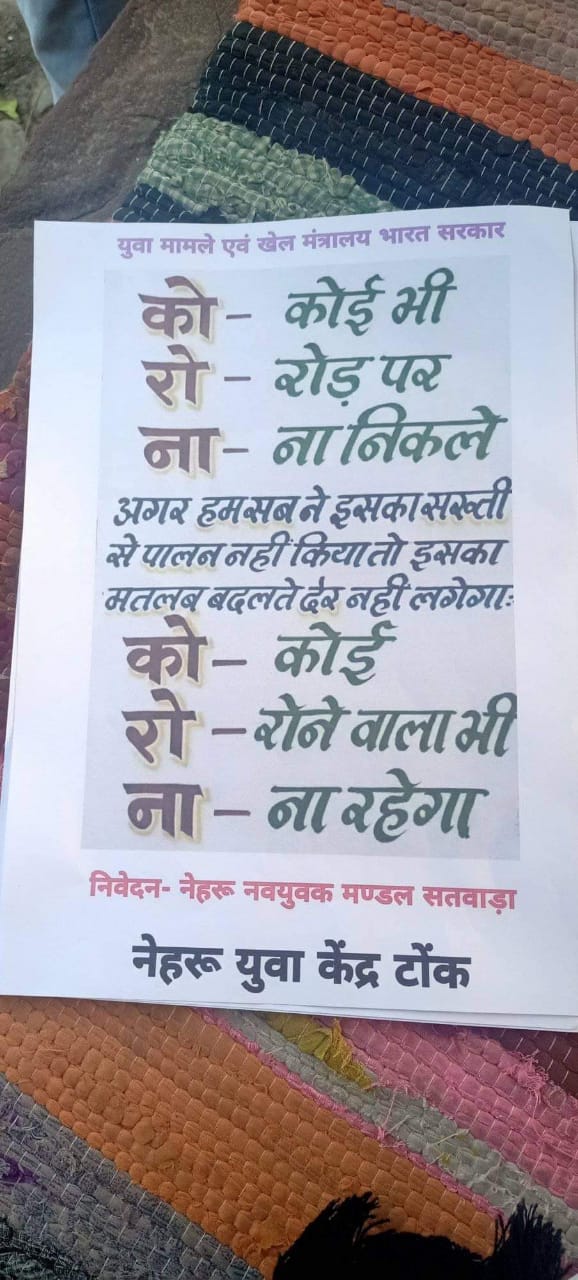 युवा मामले एवं खेल मंत्रालय भारत सरकार
को – कोई भी
रो – रोड़ पर
ना – ना निकले
अगर हम सब ने इसका सख्ती
से पालन नहीं किया तो इसका
मतलब बदलते देर नहीं लगेगाः
को – कोई
रो – रोने वाला भी
ना – ना रहेगा
निवेदन- नेहरू नवयुवक मण्डल सतवाड़ा
नेहरू युवा केंद्र टोंक